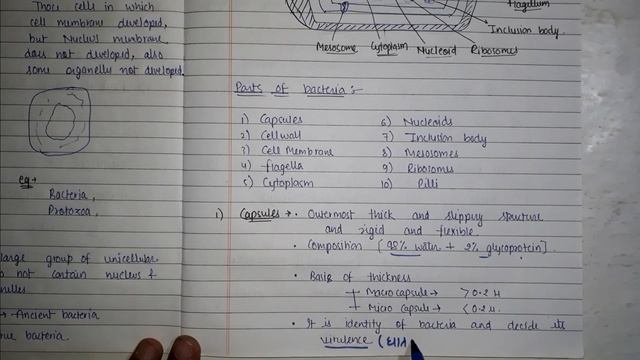 Those cells in which
cell membrane developed,
but Nucleus membrane
does not developed, also
some organelly not developed.
eg →
Bacteria,
Protozoa,
large group of unicellular
not contain nucleus &
→ Ancient bacteria
bacteria.
flagellum
Inclusion body.
Mesosome Cytoplasm Nucleoid Ribosomes
Parts of bacteria :-
1) Capsules
2) Cellwall
3) Cell Membrane
4) flagella
5) Cytoplasm
6) Nucleoids
7) Inclusion body
8) Mesosomes
9) Ribosomes
10) Pilli
1) Capsules → • Outermost thick and slippery structure
and rigid and flexible.
• Composition [98% water + 2% glycoprotein].
• Basis of thickness
Macrocapsule → > 0.2 μ
Micro capsule → < 0.2 μ.
• It is identity of bacteria and decide its
virulence (